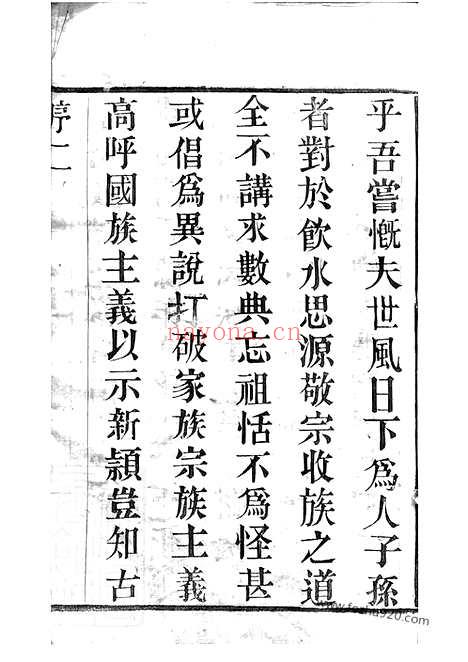 乎吾嘗慨夫世風日下爲人子孫
者對於飲水思源敬宗收族之道
全不講求數典忘祖恬不爲怪甚
或倡爲異說打破家族宗族主義
高呼國族主義以示新穎豈知古
序二
nayona.cn